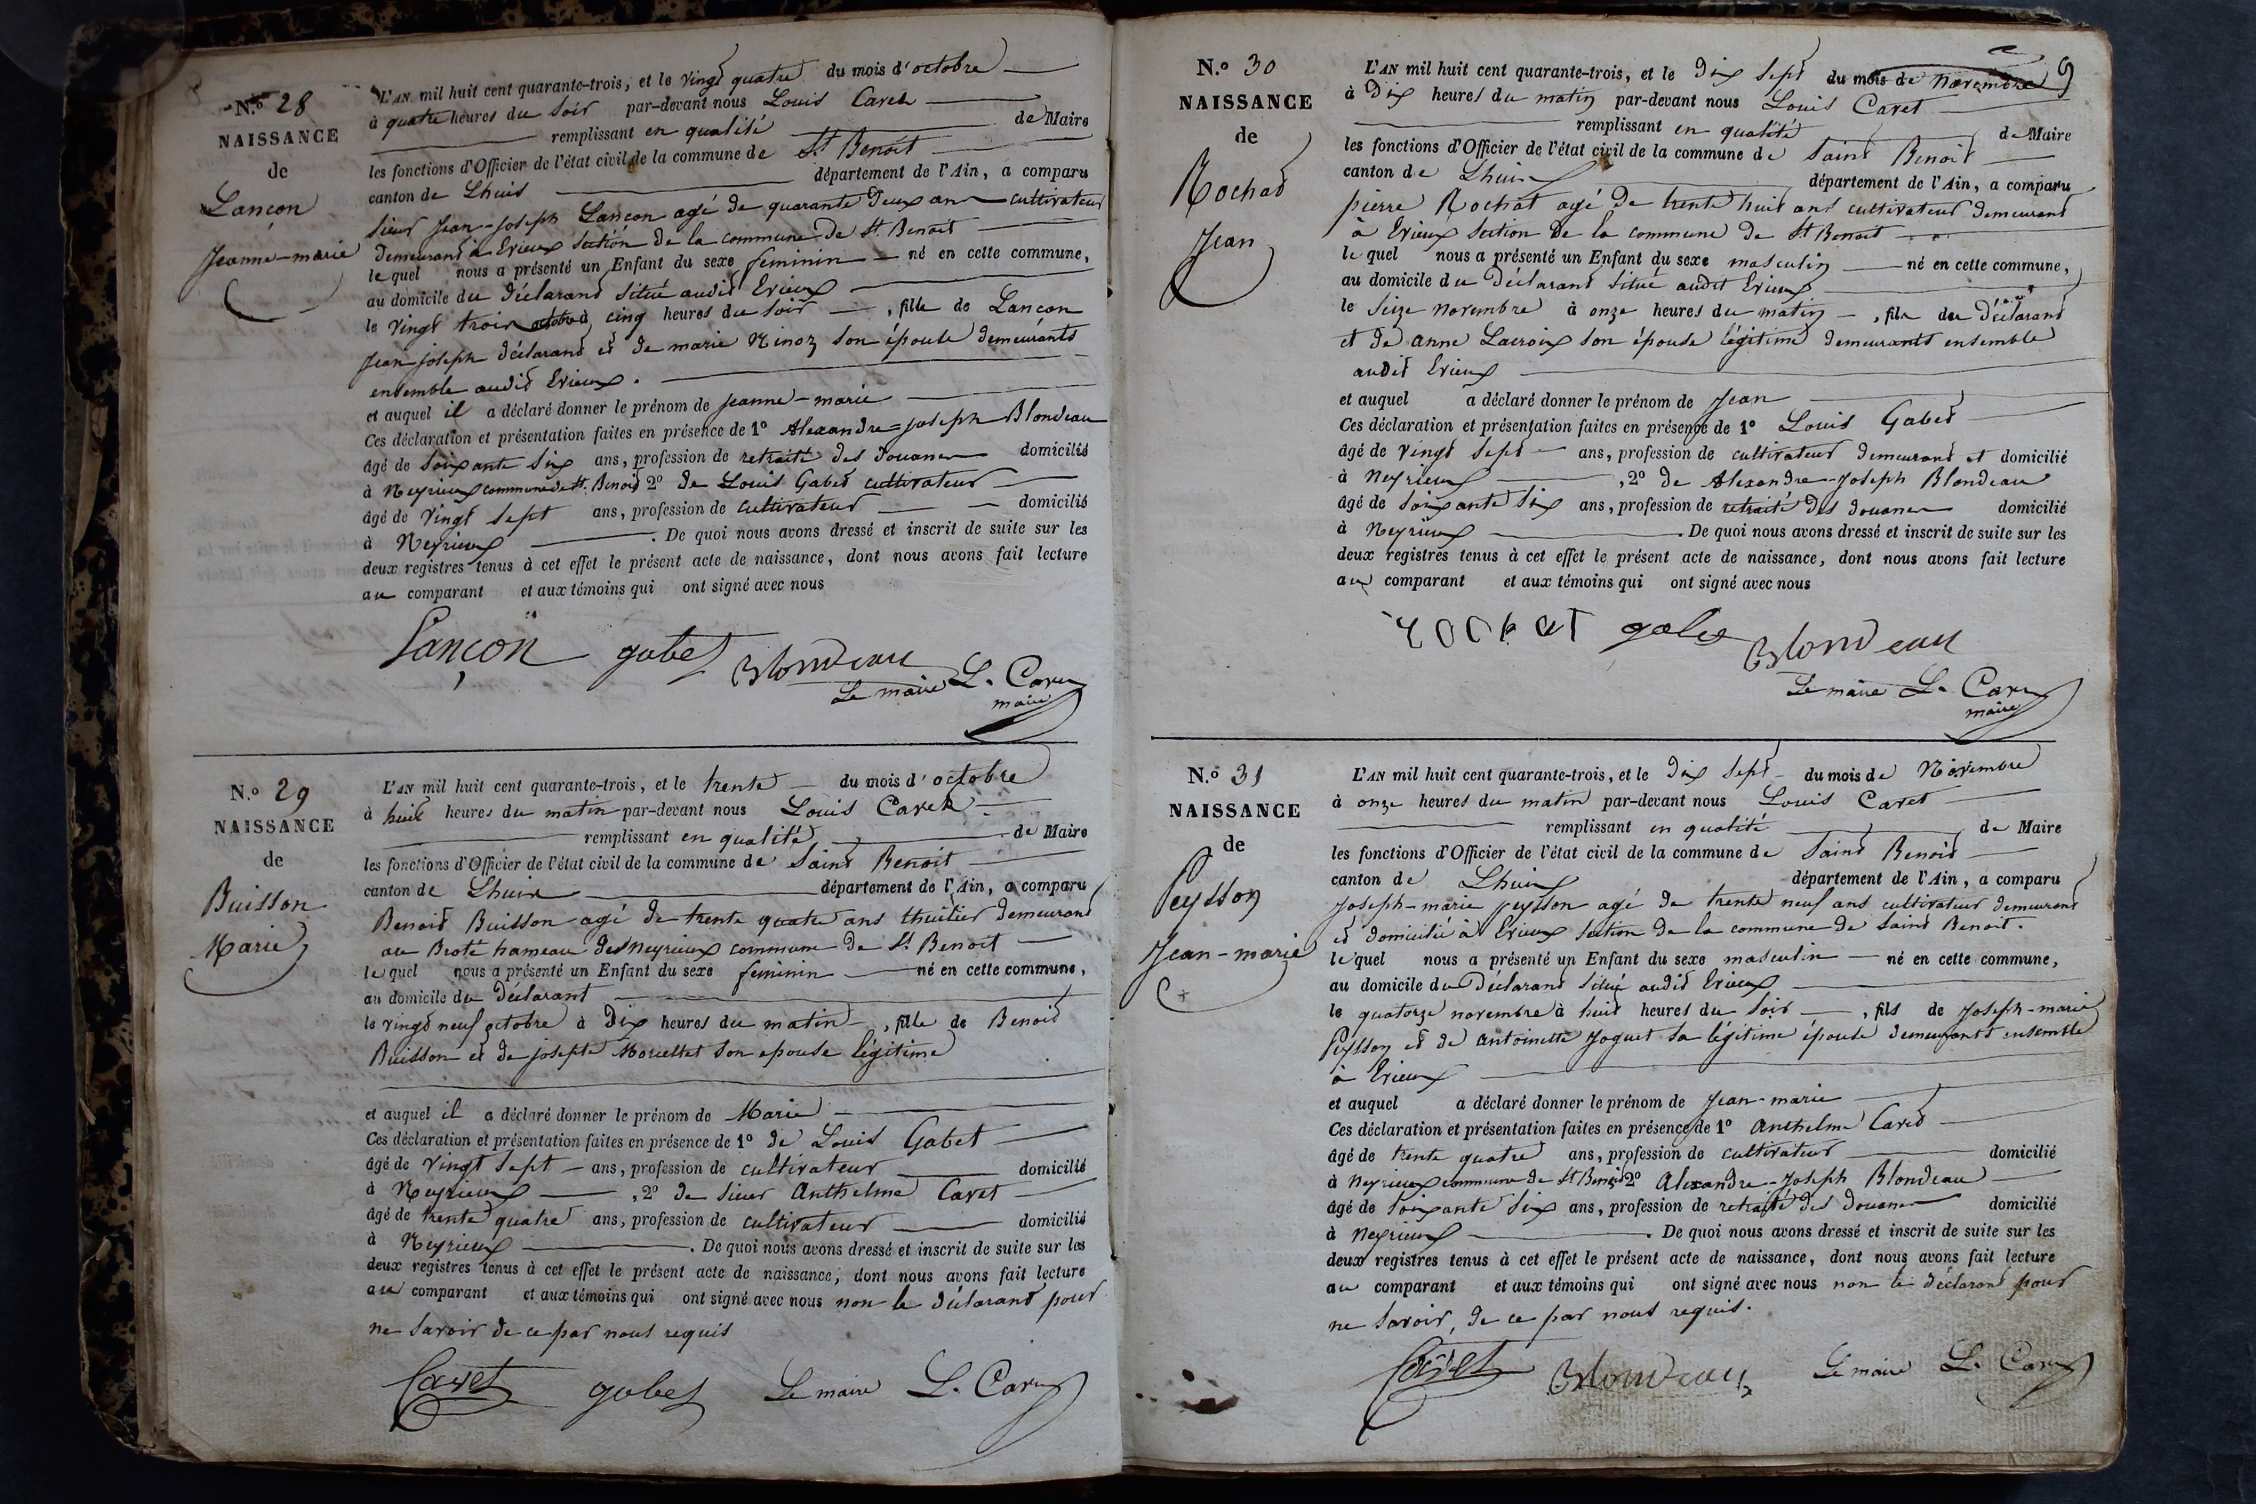 N.º 28
NAISSANCE
de
Lançon
Jeanne-marie
L'AN mil huit cent quarante-trois, et le vingt quatre du mois d'octobre
à quatre heures du soir par-devant nous Louis Caret
remplissant en qualité de Maire
les fonctions d'Officier de l'état civil de la commune de St. Benoit
canton de Lhuis département de l'Ain, a comparu
sieur Jean-Joseph Lançon agé de quarante deux ans cultivateur
demeurant à Erieux section de la commune de St. Benoit
lequel nous a présenté un Enfant du sexe feminin né en cette commune,
au domicile du déclarant situé audit Erieux
le vingt trois octobre à cinq heures du soir, fille de Lançon
Jean-joseph déclarant et de marie Ninoz son épouse demeurants
ensemble audit Erieux.
et auquel il a déclaré donner le prénom de Jeanne-marie
Ces déclaration et présentation faites en présence de 1º Alexandre-joseph Blondeau
âgé de soixante six ans, profession de retraité des douanes domicilié
à Neyrieux commune de St. Benoit 2º de Louis Gabet cultivateur
âgé de vingt sept ans, profession de cultivateur domicilié
à Neyrieux. De quoi nous avons dressé et inscrit de suite sur les
deux registres tenus à cet effet le présent acte de naissance, dont nous avons fait lecture
au comparant et aux témoins qui ont signé avec nous
Lançon gabet Blondeau
Le maire L. Caret
maire
N.º 29
NAISSANCE
de
Buisson
Marie
L'AN mil huit cent quarante-trois, et le trente du mois d'octobre
à huit heures du matin par-devant nous Louis Caret
remplissant en qualité de Maire
les fonctions d'Officier de l'état civil de la commune de Saint Benoit
canton de Lhuis département de l'Ain, a comparu
Benoit Buisson agé de trente quatre ans thuilier demeurant
au Broté hameau des Neyrieux commune de St Benoit
lequel nous a présenté un Enfant du sexe feminin né en cette commune,
au domicile du déclarant
le vingt neuf octobre à dix heures du matin, fille de Benoit
Buisson et de josepte son epouse légitime
et auquel il a déclaré donner le prénom de Marie
Ces déclaration et présentation faites en présence de 1º de Louis Gabet
âgé de vingt sept ans, profession de cultivateur domicilié
à Neyrieux, 2º de sieur Anthelme Caret
âgé de trente quatre ans, profession de cultivateur domicilié
à Neyrieux. De quoi nous avons dressé et inscrit de suite sur les
deux registres tenus à cet effet le présent acte de naissance, dont nous avons fait lecture
au comparant et aux témoins qui ont signé avec nous non le déclarant pour
ne savoir de ce par nous requis
Caret gabet Le maire L. Caret
9
N.º 30
NAISSANCE
de
Rochat
Jean
L'AN mil huit cent quarante-trois, et le dix sept du mois de novembre
à dix heures du matin par-devant nous Louis Caret
remplissant en qualité de Maire
les fonctions d'Officier de l'état civil de la commune de Saint Benoit
canton de Lhuis département de l'Ain, a comparu
pierre Rochat agé de trente huit ans cultivateur demeurant
à Erieux section de la commune de St Benoit
lequel nous a présenté un Enfant du sexe masculin né en cette commune,
au domicile du déclarant situé audit Erieux
le seize novembre à onze heures du matin, fils du déclarant
et de anne Lacroix son épouse légitime demeurants ensemble
audit Erieux
et auquel a déclaré donner le prénom de Jean
Ces déclaration et présentation faites en présence de 1º Louis Gabet
âgé de vingt sept ans, profession de cultivateur demeurant et domicilié
à Neyrieux, 2º de Alexandre-Joseph Blondeau
âgé de soixante six ans, profession de retraité des douanes domicilié
à Neyrieux. De quoi nous avons dressé et inscrit de suite sur les
deux registres tenus à cet effet le présent acte de naissance, dont nous avons fait lecture
au comparant et aux témoins qui ont signé avec nous
rochat gabet Blondeau
Le maire L. Caret
maire
N.º 31
NAISSANCE
de
Peysson
Jean-marie
L'AN mil huit cent quarante-trois, et le dix sept du mois de Novembre
à onze heures du matin par-devant nous Louis Caret
remplissant en qualité de Maire
les fonctions d'Officier de l'état civil de la commune de Saint Benoit
canton de Lhuis département de l'Ain, a comparu
Joseph-marie peysson agé de trente neuf ans cultivateur demeurant
et domicilié à Erieux section de la commune de Saint Benoit.
lequel nous a présenté un Enfant du sexe masculin né en cette commune,
au domicile du déclarant situé audit Erieux
le quatorze novembre à huit heures du soir, fils de Joseph-marie
Peysson et de antoinette Joguet sa légitime épouse demeurants ensemble
à Erieux
et auquel a déclaré donner le prénom de Jean-marie
Ces déclaration et présentation faites en présence de 1º Anthelme Caret
âgé de trente quatre ans, profession de cultivateur domicilié
à Neyrieux commune de St Benoit 2º Alexandre-Joseph Blondeau
âgé de soixante six ans, profession de retraité des douanes domicilié
à Neyrieux. De quoi nous avons dressé et inscrit de suite sur les
deux registres tenus à cet effet le présent acte de naissance, dont nous avons fait lecture
au comparant et aux témoins qui ont signé avec nous non le déclarant pour
ne savoir, de ce par nous requis.
Caret Blondeau Le maire L. Caret